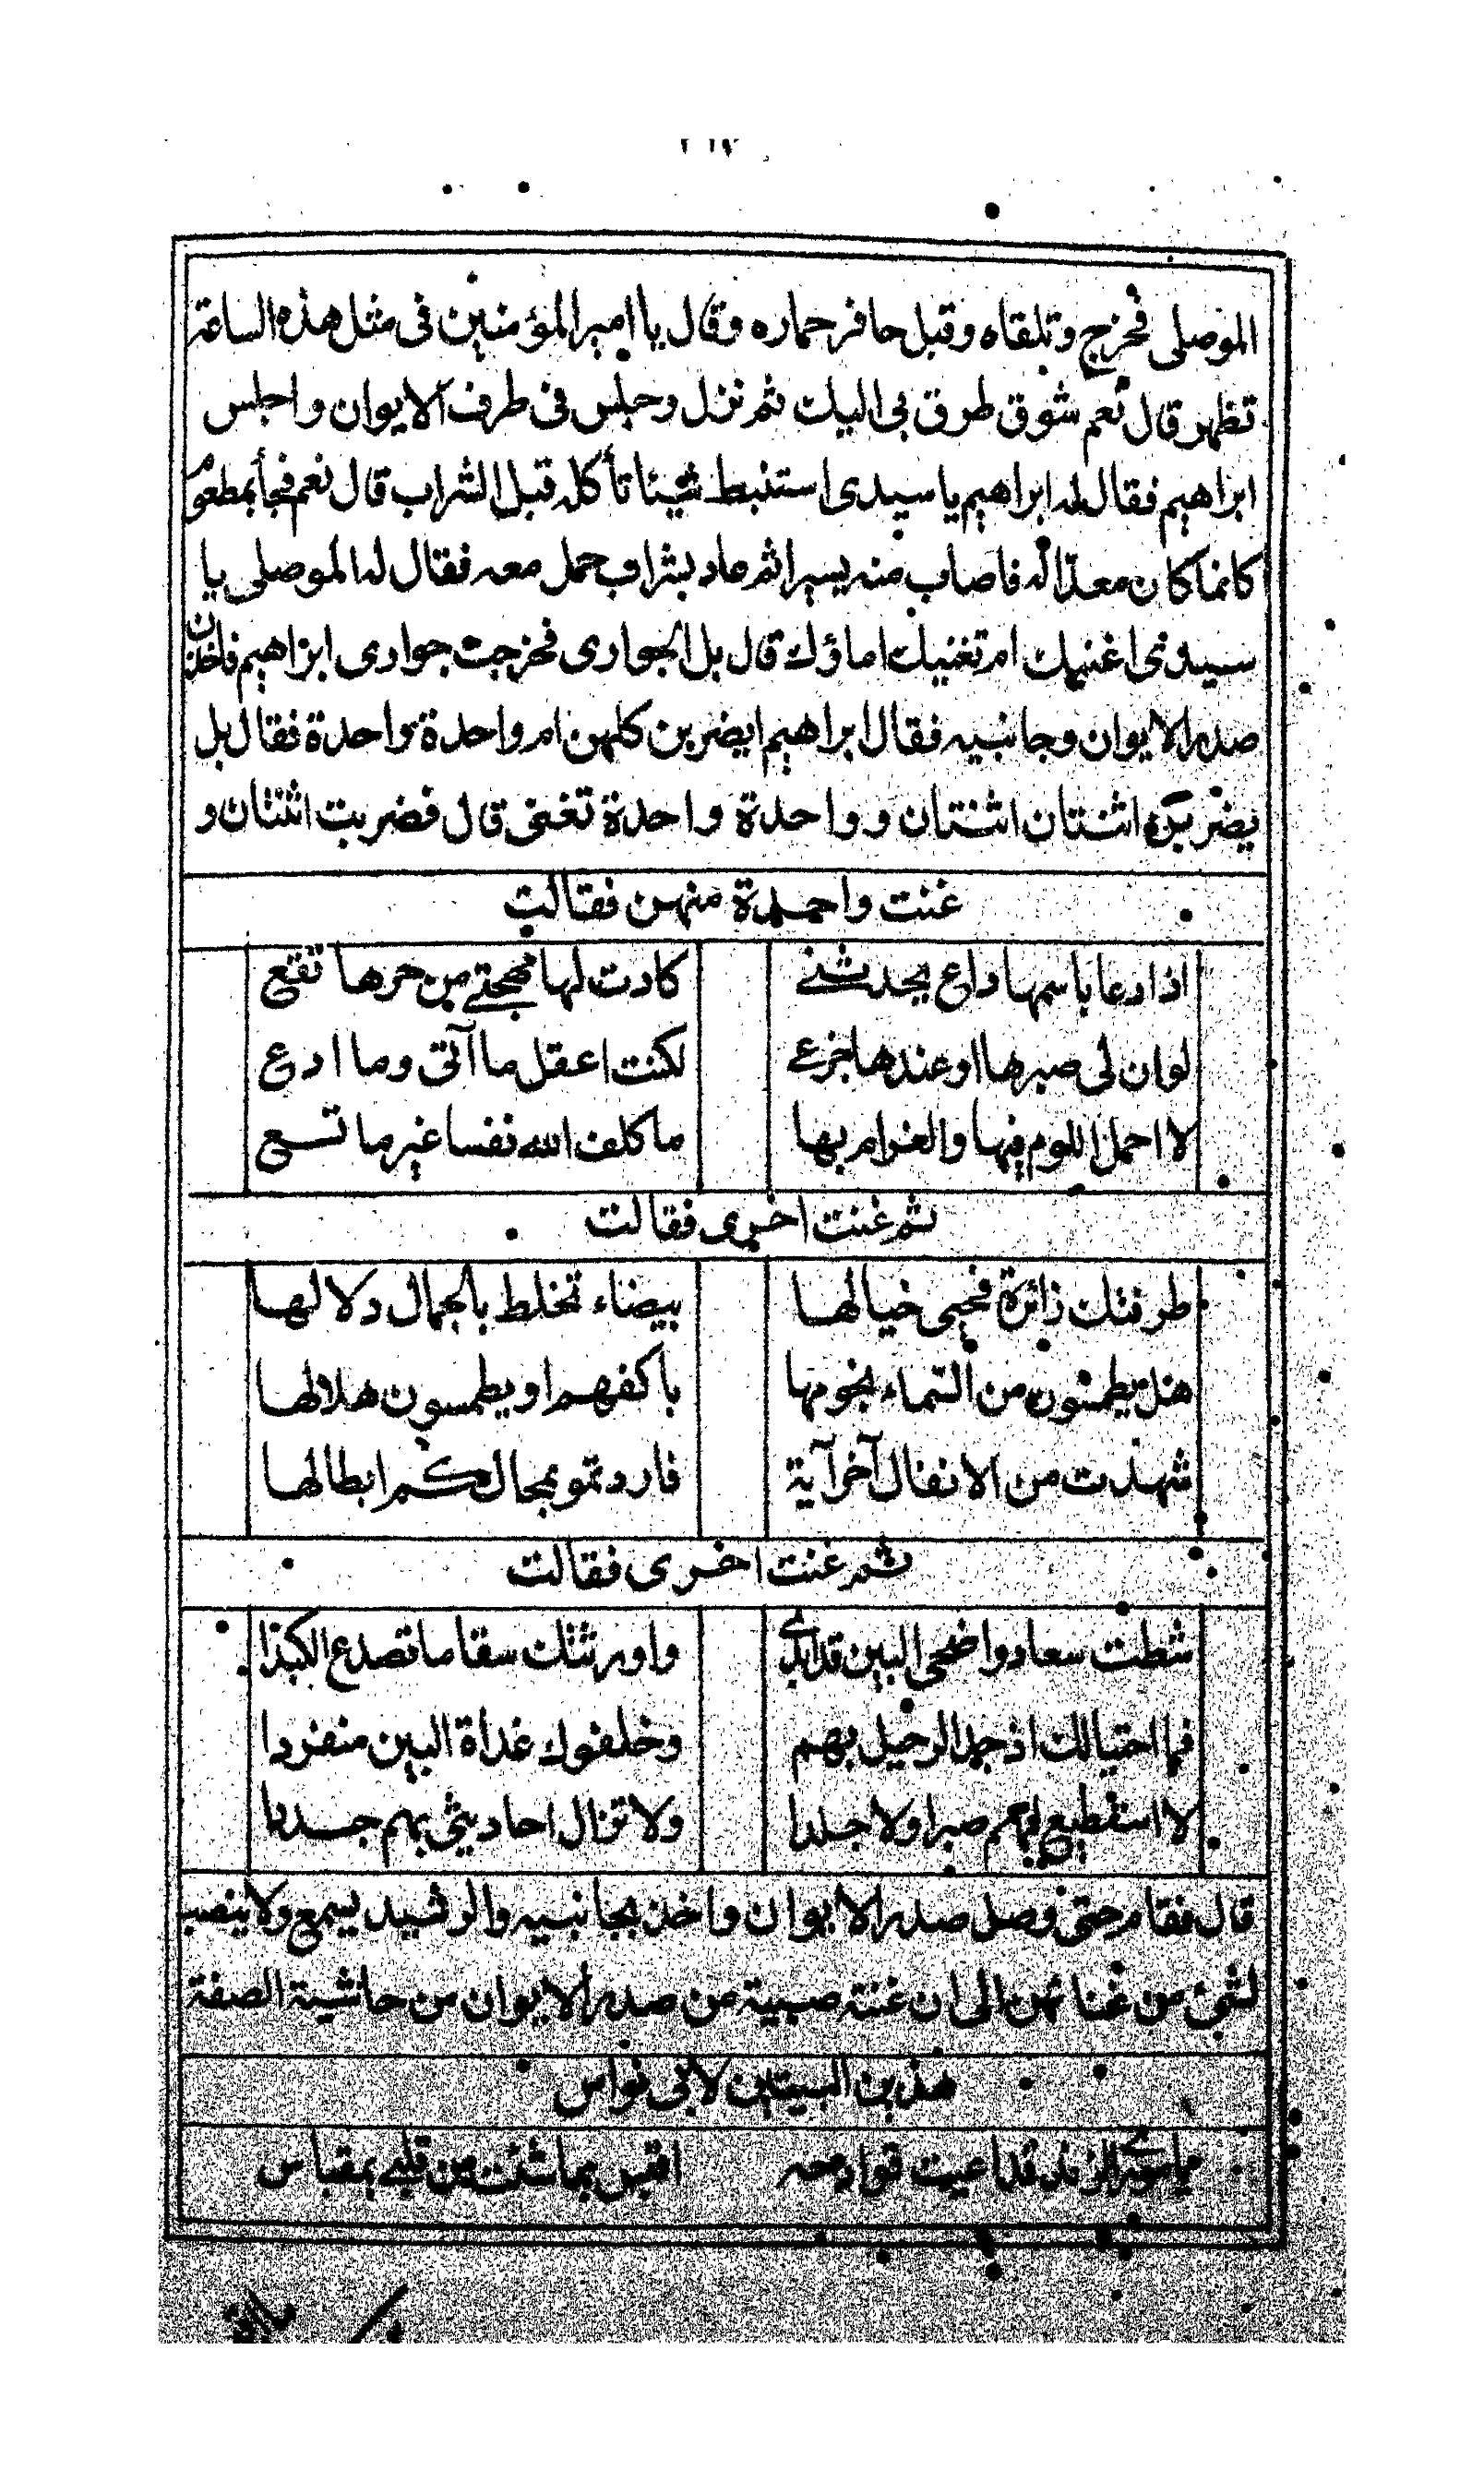 الموصلى فخرج وتلقاه وقبل حافر حماره وقال يا امير المؤمنين فى مثل هذه الساعة
تظهر قال نعم شوق طرق بى اليك ثم نزل وجلس فى طرف الايوان واجلس
ابراهيم فقال له ابراهيم يا سيدى استنبط شيئا تأكله قبل الشراب قال نعم فجأ بمطعوم
كانما كان معدّا له فاصاب منه يسيرا ثم عاد بشراب حمل معه فقال له الموصلى يا
سيدى اغنيك ام تغنيك اماؤك قال بل الجوارى فخرجت جوارى ابراهيم فاخذن
صدر الايوان وجانبيه فقال ابراهيم ايضربن كلهن ام واحدة واحدة فقال بل
يضربن اثنتان اثنتان وواحدة واحدة تغنى قال فضربت اثنتان و
غنت واحدة منهن فقالت
اذا دعا باسمها داع يحدثنى كادت لها مهجتى من حرها تقع
لوان لى صبرها او عندها جزعى لكنت اعقل ما آتى وما ادع
لا احمل اللوم فيها والغرام بها ما كلف الله نفسا غير ما تسع
ثم غنت اخرى فقالت
طرقتك زائرة فحيى خيالها بيضاء تخلط بالجمال دلالها
هل يطمسون من السماء نجومها باكفهم او يطمسون هلالها
شهدت من الانفال آخر آية فاردتمو بمحالكم ابطالها
ثم غنت اخرى فقالت
شطت سعاد واضحى البين قد ابدى واورثتك سقاما تصدع الكبدا
فما احتيالك اذ جد الرحيل بهم وخلفوك غداة البين منفردا
لا استطيع لهم صبرا ولا جلدا ولا تزال احاديثى بهم جددا
قال فقام حتى وصل صدر الايوان واخذ بجانبيه والرشيد يسمع ولا ينصب
لشئ من غنائهن الى ان غنت صبية من صدر الايوان من حاشية الصفة
هذين البيتين لابى نواس
يا مورى الزند قد اعيت قوادحه اقبس بما شئت من قلبى بمقباس